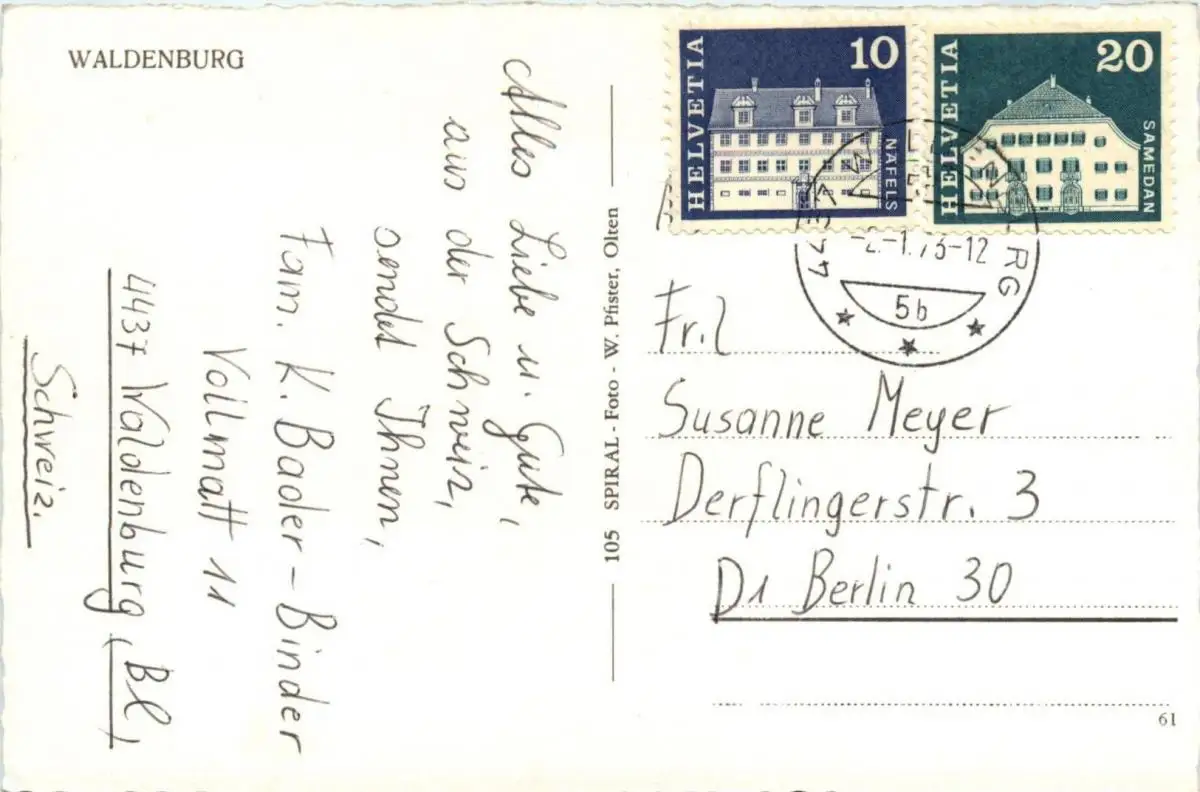 WALDENBURG
Alles Liebe u. Gute,
aus der Schweiz,
sendet Ihnen,
Fam. K. Bader-Binder
Vollmatt 11
4437 Waldenburg (Bl)
Schweiz.
105 SPIRAL - Foto - W. Pfister, Olten
HELVETIA
10
NÄFELS
HELVETIA
20
SAMEDAN
-2.-1.73-12
5b
Frl
Susanne Meyer
Derflingerstr. 3
D1 Berlin 30
61